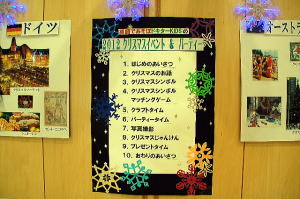 ドイツ
英語であそぼ ドキターKIDSの
2012 クリスマスイベント & パーティー
1. はじめのあいさつ
2. クリスマスのお話
3. クリスマスシンボル
4. クリスマスシンボル
マッチングゲーム
5. クラフトタイム
6. パーティータイム
7. 写真撮影
8. クリスマスじゃんけん
9. プレゼントタイム
10. おわりのあいさつ
オーストラ